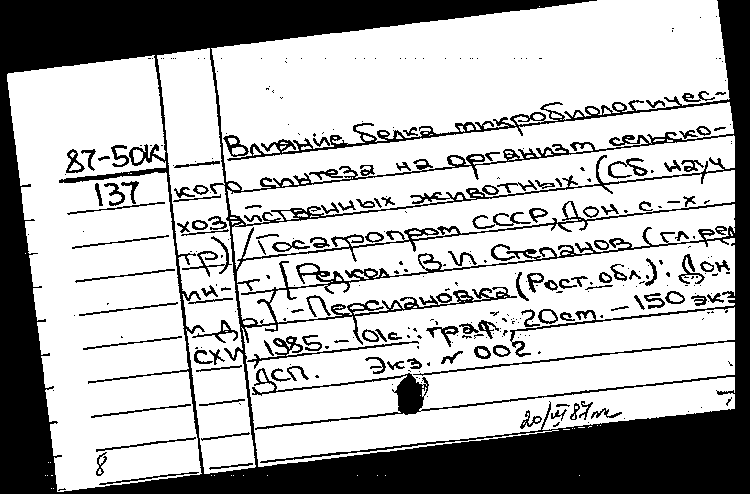 87-50К
137
Влияние белка микробиологичес-
кого синтеза на организм сельско-
хозяйственных животных: (Сб. науч
тр) / Госагропром СССР, Дон. с.-х.
ин-т; [Редкол.: В.И. Степанов (гл.ред
и др.]. - Персиановка (Рост. обл.): Дон
СХИ, 1985. - 101с.: граф., 20см. - 150 экз
ДСП. Экз. № 002.
8